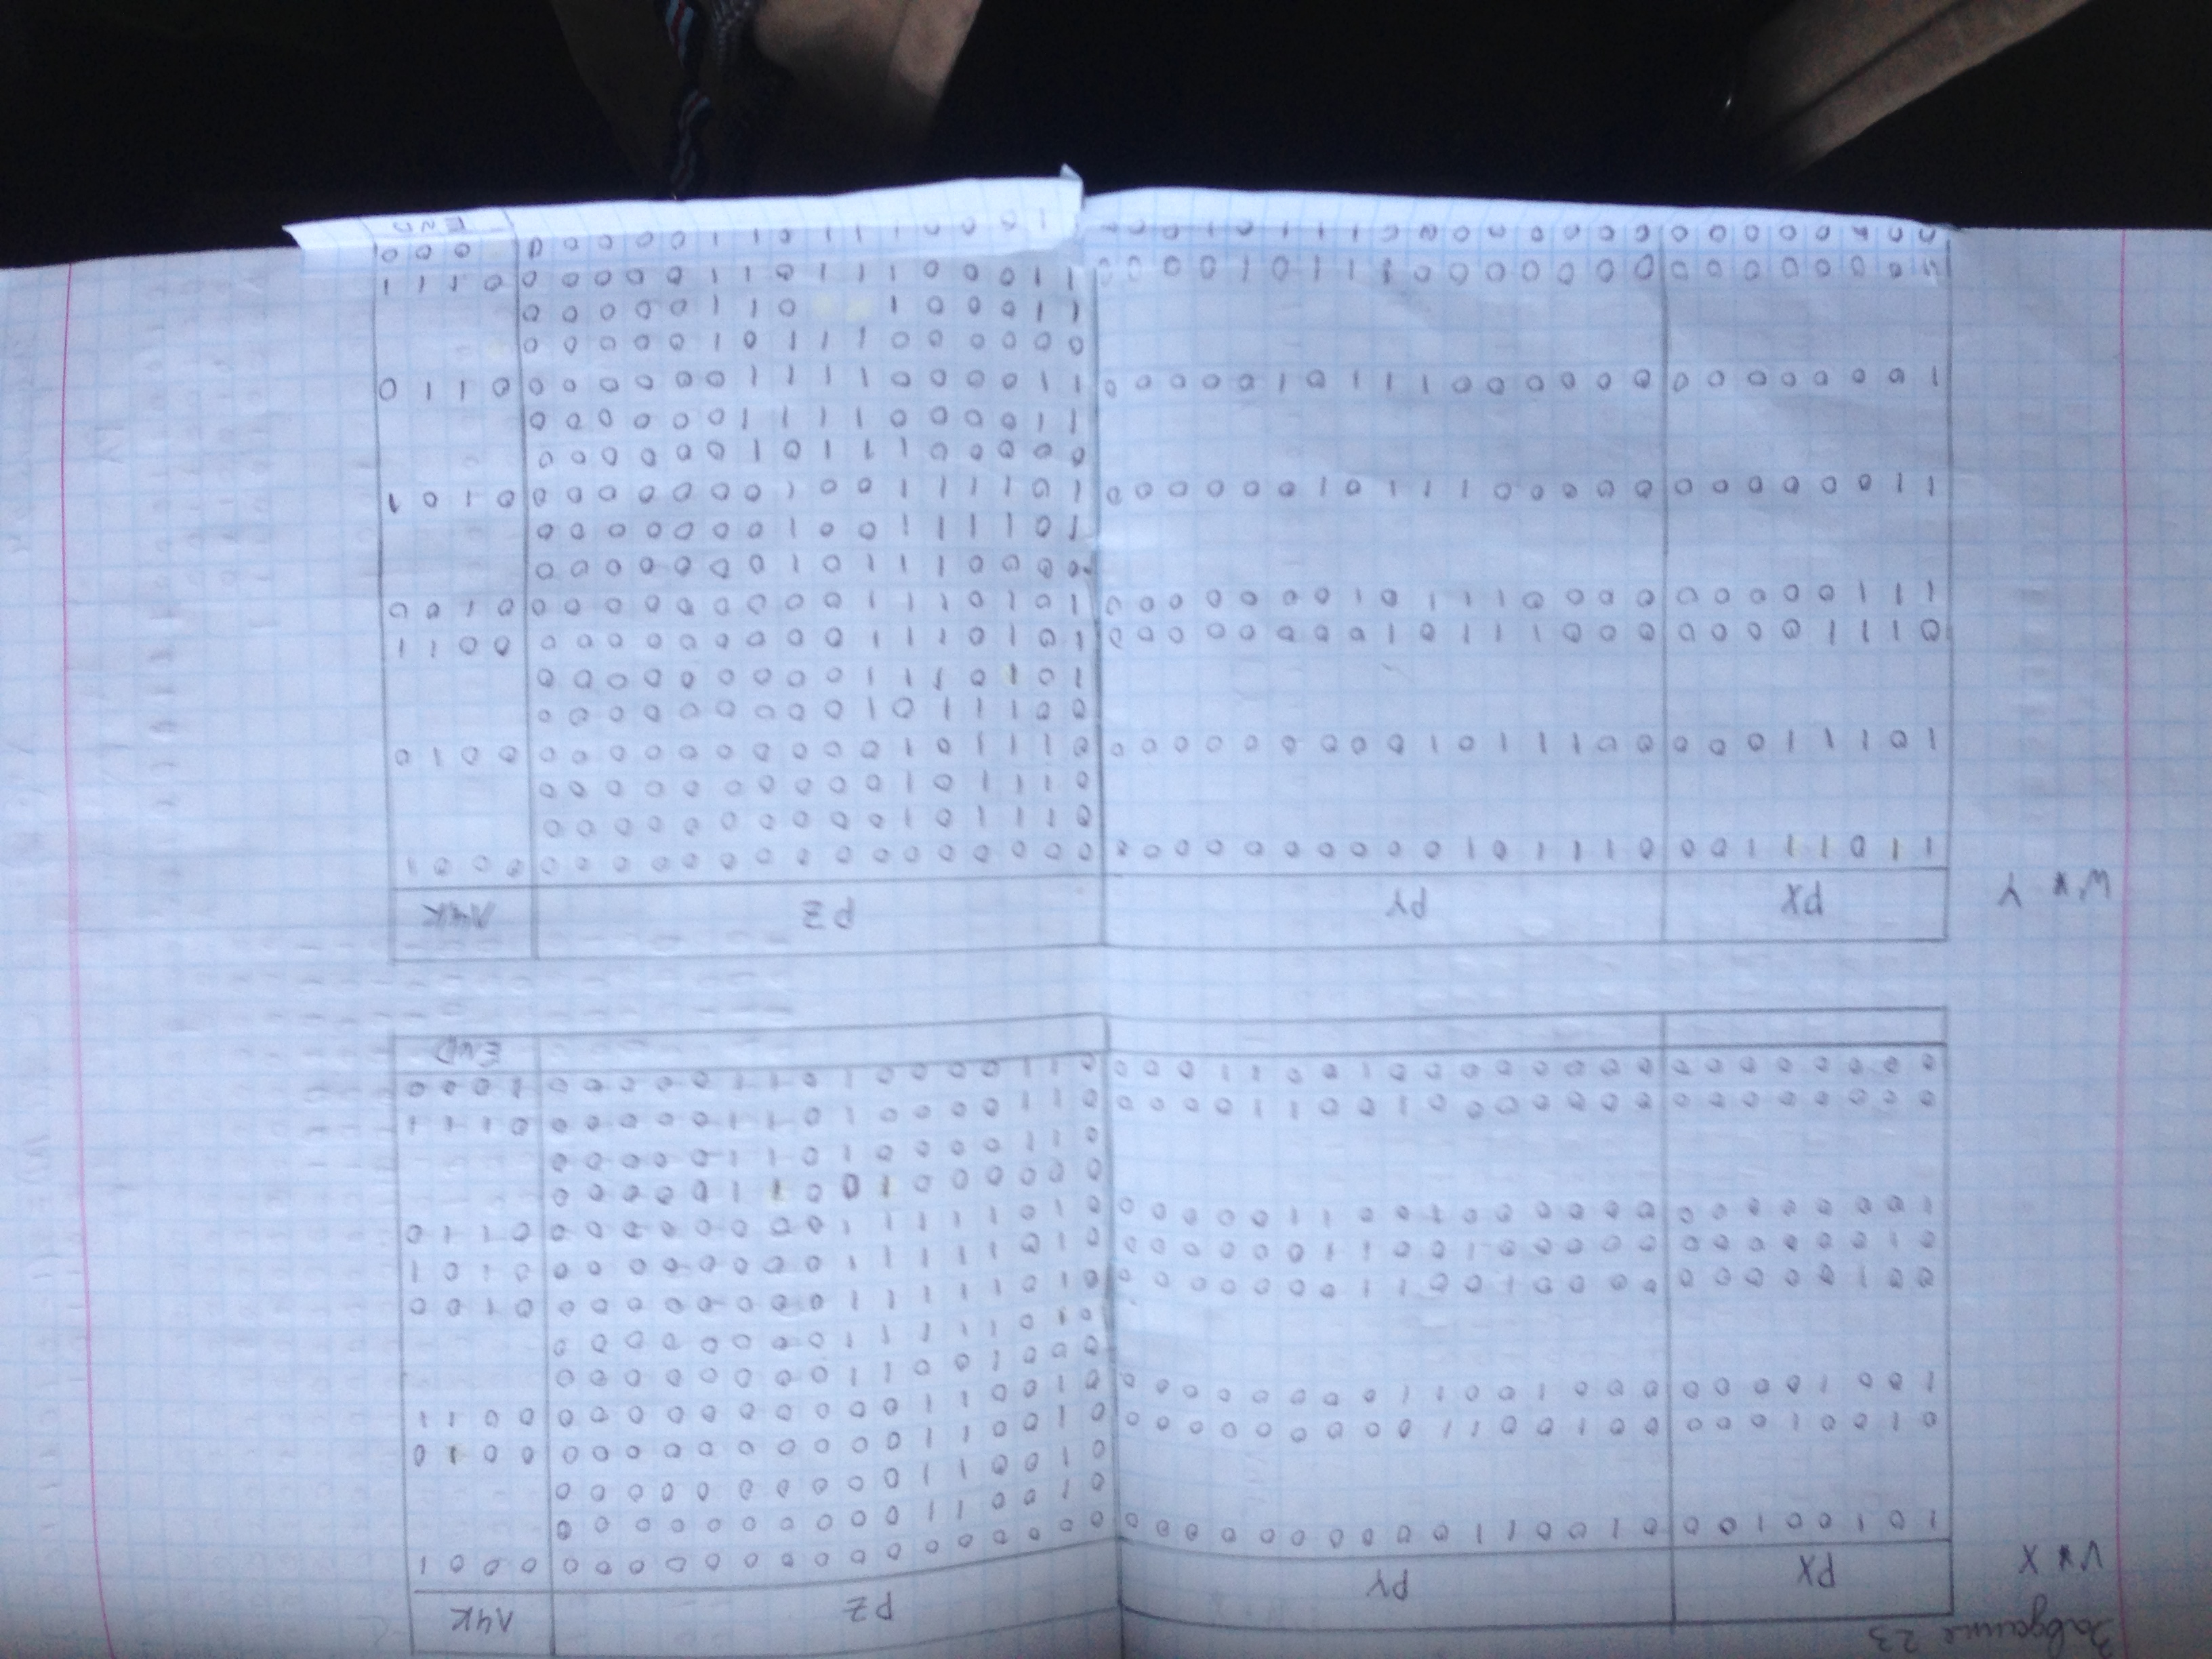 Завдання 23
V * X
PX PY PZ ЛЧК
1 0 1 0 0 1 0 0 0 1 0 0 1 1 0 0 0 0 0 0 0 0 0 0 0 0 0 0 0 0 0 0 0 0 0 0 0 0 0 0 0 0 0 1
0 1 0 0 1 1 0 0 0 0 0 0 0 0 0 0
0 1 0 0 1 1 0 0 0 0 0 0 0 0 0 0
0 1 0 0 1 0 0 0 0 0 1 0 0 1 1 0 0 0 0 0 0 0 0 0 0 1 0 0 1 1 0 0 0 0 0 0 0 0 0 0 0 0 1 0
1 0 0 1 0 0 0 0 0 0 0 1 0 0 1 1 0 0 0 0 0 0 0 0 0 1 0 0 1 1 0 0 0 0 0 0 0 0 0 0 0 0 1 1
0 0 0 1 0 0 1 1 0 0 0 0 0 0 0 0
0 1 0 1 1 1 1 1 0 0 0 0 0 0 0 0
0 0 1 0 0 0 0 0 0 0 0 0 1 0 0 1 1 0 0 0 0 0 0 0 0 1 0 1 1 1 1 1 0 0 0 0 0 0 0 0 0 1 0 0
0 1 0 0 0 0 0 0 0 0 0 0 0 1 0 0 1 1 0 0 0 0 0 0 0 1 0 1 1 1 1 1 0 0 0 0 0 0 0 0 0 1 0 1
1 0 0 0 0 0 0 0 0 0 0 0 0 0 1 0 0 1 1 0 0 0 0 0 0 1 0 1 1 1 1 1 0 0 0 0 0 0 0 0 0 1 1 0
0 0 0 0 0 0 1 0 0 1 1 0 0 0 0 0
0 1 1 0 0 0 0 1 0 1 1 0 0 0 0 0
0 0 0 0 0 0 0 0 0 0 0 0 0 0 0 1 0 0 1 1 0 0 0 0 0 1 1 0 0 0 0 1 0 1 1 0 0 0 0 0 0 1 1 1
0 0 0 0 0 0 0 0 0 0 0 0 0 0 0 0 1 0 0 1 1 0 0 0 0 1 1 0 0 0 0 1 0 1 1 0 0 0 0 0 1 0 0 0
END
W * Y
PX PY PZ ЛЧК
1 1 0 1 1 1 0 0 0 1 1 1 0 1 0 0 0 0 0 0 0 0 0 0 0 0 0 0 0 0 0 0 0 0 0 0 0 0 0 0 0 0 0 1
0 1 1 1 0 1 0 0 0 0 0 0 0 0 0 0
0 1 1 1 0 1 0 0 0 0 0 0 0 0 0 0
1 0 1 1 1 0 0 0 0 0 1 1 1 0 1 0 0 0 0 0 0 0 0 0 0 1 1 1 0 1 0 0 0 0 0 0 0 0 0 0 0 0 1 0
0 0 1 1 1 0 1 0 0 0 0 0 0 0 0 0
1 0 1 0 1 1 1 0 0 0 0 0 0 0 0 0
0 1 1 1 0 0 0 0 0 0 0 1 1 1 0 1 0 0 0 0 0 0 0 0 1 0 1 0 1 1 1 0 0 0 0 0 0 0 0 0 0 0 1 1
1 1 1 0 0 0 0 0 0 0 0 0 1 1 1 0 1 0 0 0 0 0 0 0 1 0 1 0 1 1 1 0 0 0 0 0 0 0 0 0 0 1 0 0
0 0 0 0 1 1 1 0 1 0 0 0 0 0 0 0
1 0 1 1 1 1 0 0 1 0 0 0 0 0 0 0
1 1 0 0 0 0 0 0 0 0 0 0 0 1 1 1 0 1 0 0 0 0 0 0 1 0 1 1 1 1 0 0 1 0 0 0 0 0 0 0 0 1 0 1
0 0 0 0 0 1 1 1 0 1 0 0 0 0 0 0
1 1 0 0 0 0 1 1 1 1 0 0 0 0 0 0
1 0 0 0 0 0 0 0 0 0 0 0 0 0 1 1 1 0 1 0 0 0 0 0 1 1 0 0 0 0 1 1 1 1 0 0 0 0 0 0 0 1 1 0
0 0 0 0 0 0 1 1 1 0 1 0 0 0 0 0
1 1 0 0 0 1 0 1 1 0 0 0 0 0
0 0 0 0 0 0 0 0 0 0 0 0 0 0 1 1 1 0 1 0 0 0 0 1 1 0 0 0 1 1 1 0 1 1 0 0 0 0 0 0 1 1 1
0 0 0 0 0 0 0 0 0 1 1 1 0 1 1 0 0 0 0 0 0 0 0
END